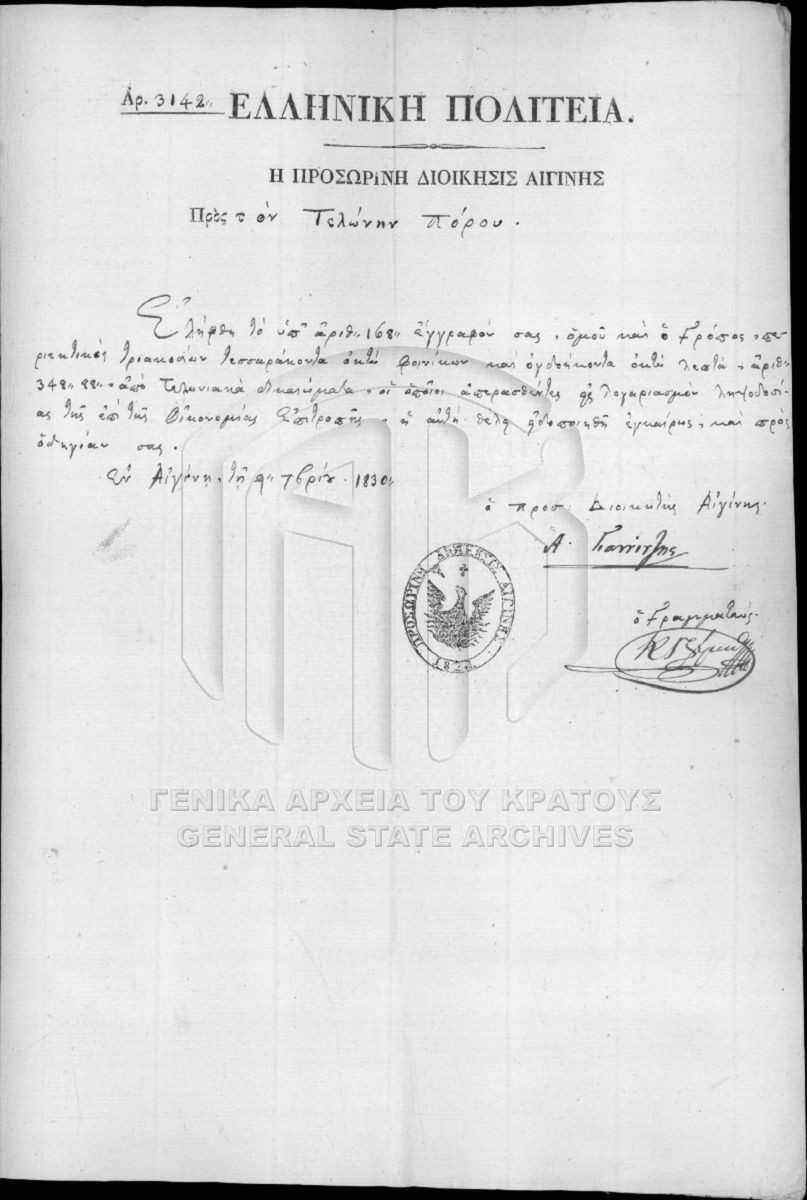 Ἀρ. 3142,,
ΕΛΛΗΝΙΚΗ ΠΟΛΙΤΕΙΑ.
Η ΠΡΟΣΩΡΙΝΗ ΔΙΟΙΚΗΣΙΣ ΑΙΓΙΝΗΣ
Πρὸς τὸν Τελώνην Πόρου.
Ἐλήφθη τὸ ὑπ' ἀριθ: 168,, ἔγγραφόν σας, ὁμοῦ καὶ ὁ Γρόπος, πε-
ριεκτικὸς τριακοσίων τεσσαράκοντα ὀκτὼ φοινίκων καὶ ὀγδοήκοντα ὀκτὼ λεπτὰ, ἀριθ:
348,, 88,, ἀπὸ Τελωνιακὰ δικαιώματα, οἱ ὁποῖοι ἀπερασθέντες εἰς λογαριασμὸν ληψοδοσί-
ας τῆς ἐπὶ τῆς Οἰκονομίας Ἐπιτροπῆς, ἡ αὐτὴ θέλει εἰδοποιηθῆ ἐγκαίρως, καὶ πρὸς
ὁδηγίαν σας.
Ἐν Αἰγίνῃ τῇ 7βρίου 1830,,
ὁ προσ: Διοικητὴς Αἰγίνης
Α.
ΠΡΟΣΩΡΙΝΗ ΔΙΟΙΚΗΣΙΣ ΑΙΓΙΝΗΣ
ὁ Γραμματεύς
ΓΕΝΙΚΑ ΑΡΧΕΙΑ ΤΟΥ ΚΡΑΤΟΥΣ
GENERAL STATE ARCHIVES